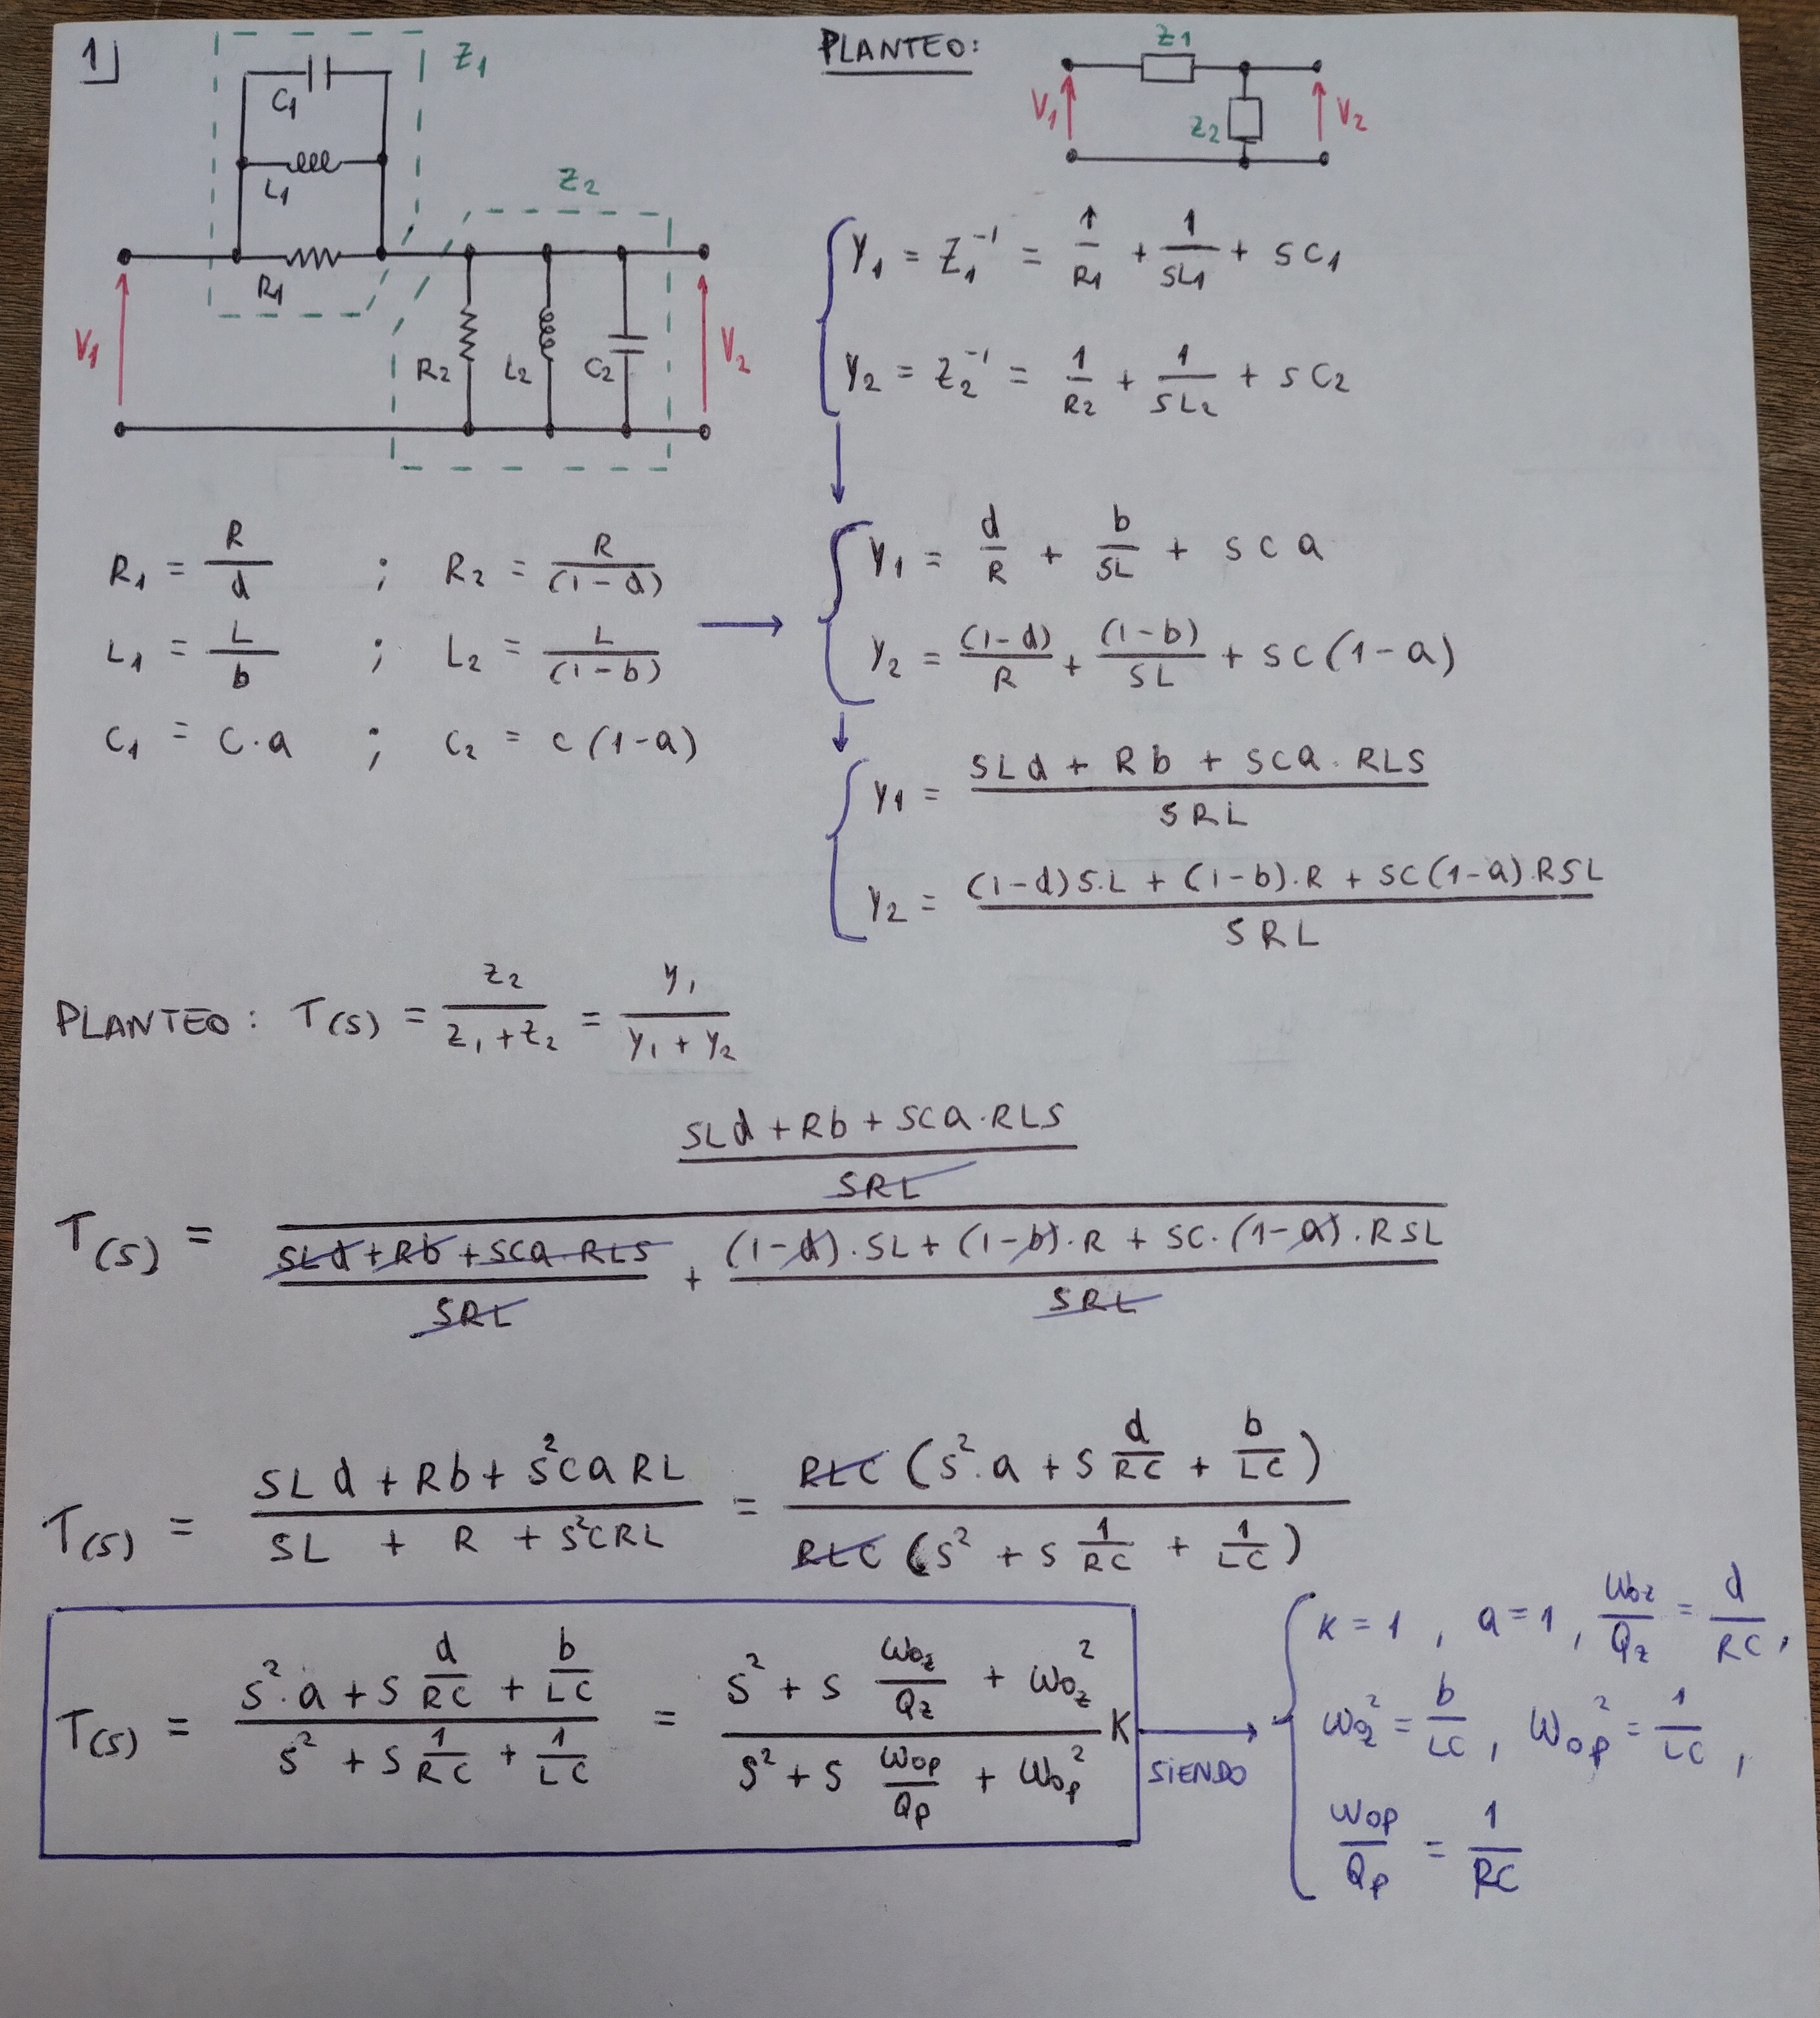 1)
Z1
C1
L1
R1
Z2
V1
R2 L2 C2
V2
PLANTEO:
Z1
V1
Z2
V2
Y1 = Z1^-1 = 1/R1 + 1/SL1 + SC1
Y2 = Z2^-1 = 1/R2 + 1/SL2 + SC2
R1 = R/d ; R2 = R/(1-d)
L1 = L/b ; L2 = L/(1-b)
C1 = C·a ; C2 = C(1-a)
Y1 = d/R + b/SL + SCa
Y2 = (1-d)/R + (1-b)/SL + SC(1-a)
Y1 = (SLd + Rb + SCa·RLS)/SRL
Y2 = ((1-d)S.L + (1-b).R + SC(1-a).RSL)/SRL
PLANTEO: T(S) = Z2/(Z1+Z2) = Y1/(Y1+Y2)
T(S) = ((SLd+Rb+SCa·RLS)/SRL) / ((SLd+Rb+SCa·RLS)/SRL + ((1-d).SL+(1-b).R+SC.(1-a).RSL)/SRL)
T(S) = (SLd + Rb + S²CaRL)/(SL + R + S²CRL) = RLC(S².a + S d/RC + b/LC)/RLC(S² + S 1/RC + 1/LC)
T(S) = (S².a + S d/RC + b/LC)/(S² + S 1/RC + 1/LC) = (S² + S ωoz/Qz + ωoz²)/(S² + S ωop/Qp + ωop²) K
SIENDO
K=1, a=1, ωoz/Qz = d/RC,
ωoz² = b/LC, ωop² = 1/LC,
ωop/Qp = 1/RC